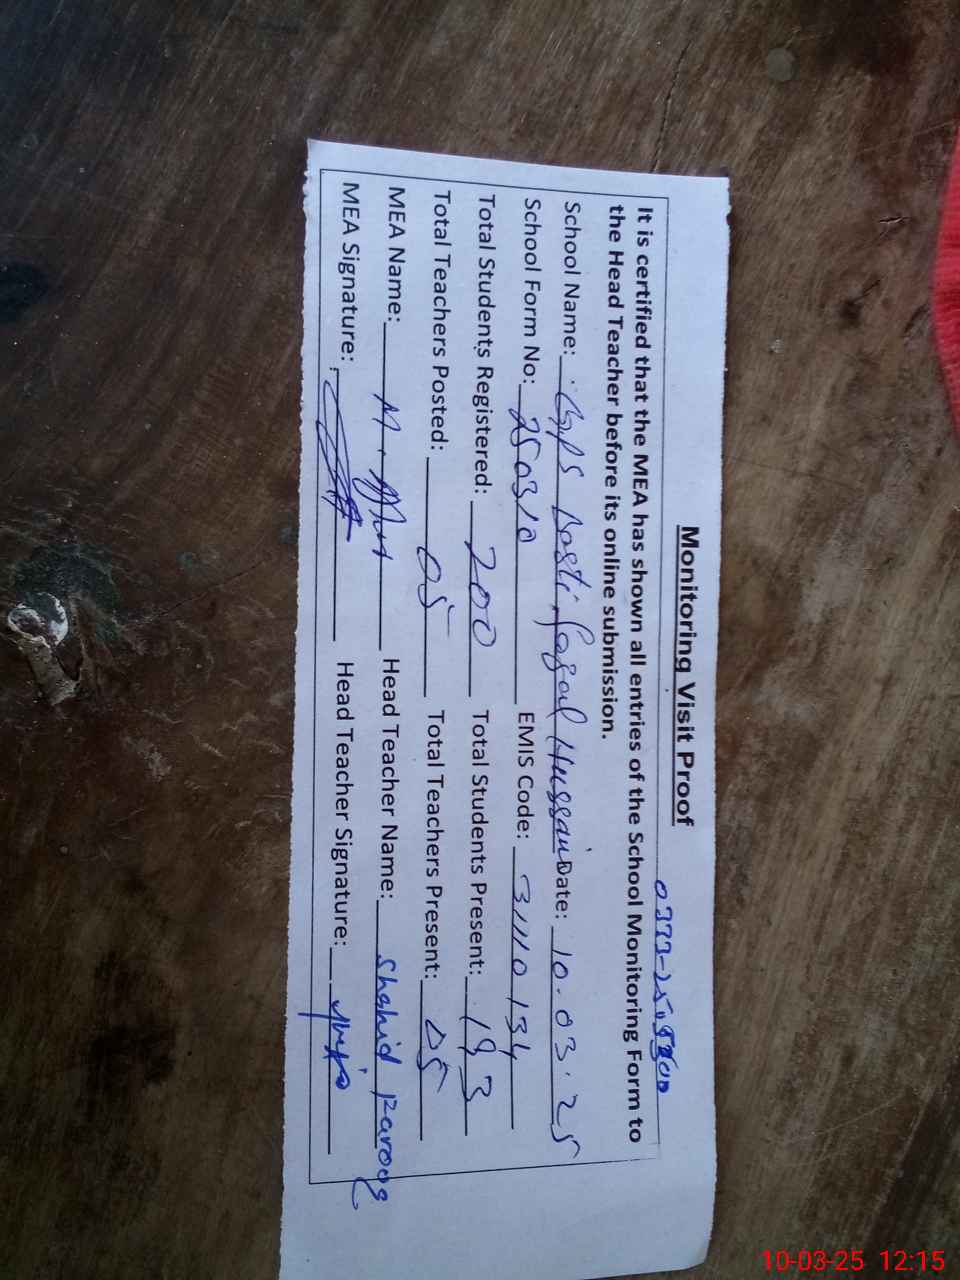 Monitoring Visit Proof
It is certified that the MEA has shown all entries of the School Monitoring Form to
the Head Teacher before its online submission.
School Name: GPS Basti Hussain Date: 10.03.25
School Form No: 250310 EMIS Code: 31110134
Total Students Registered: 200 Total Students Present: 193
Total Teachers Posted: 05 Total Teachers Present: 05
MEA Name: M. Head Teacher Name: Shahid Farooq
MEA Signature: Head Teacher Signature:
10-03-25 12:15